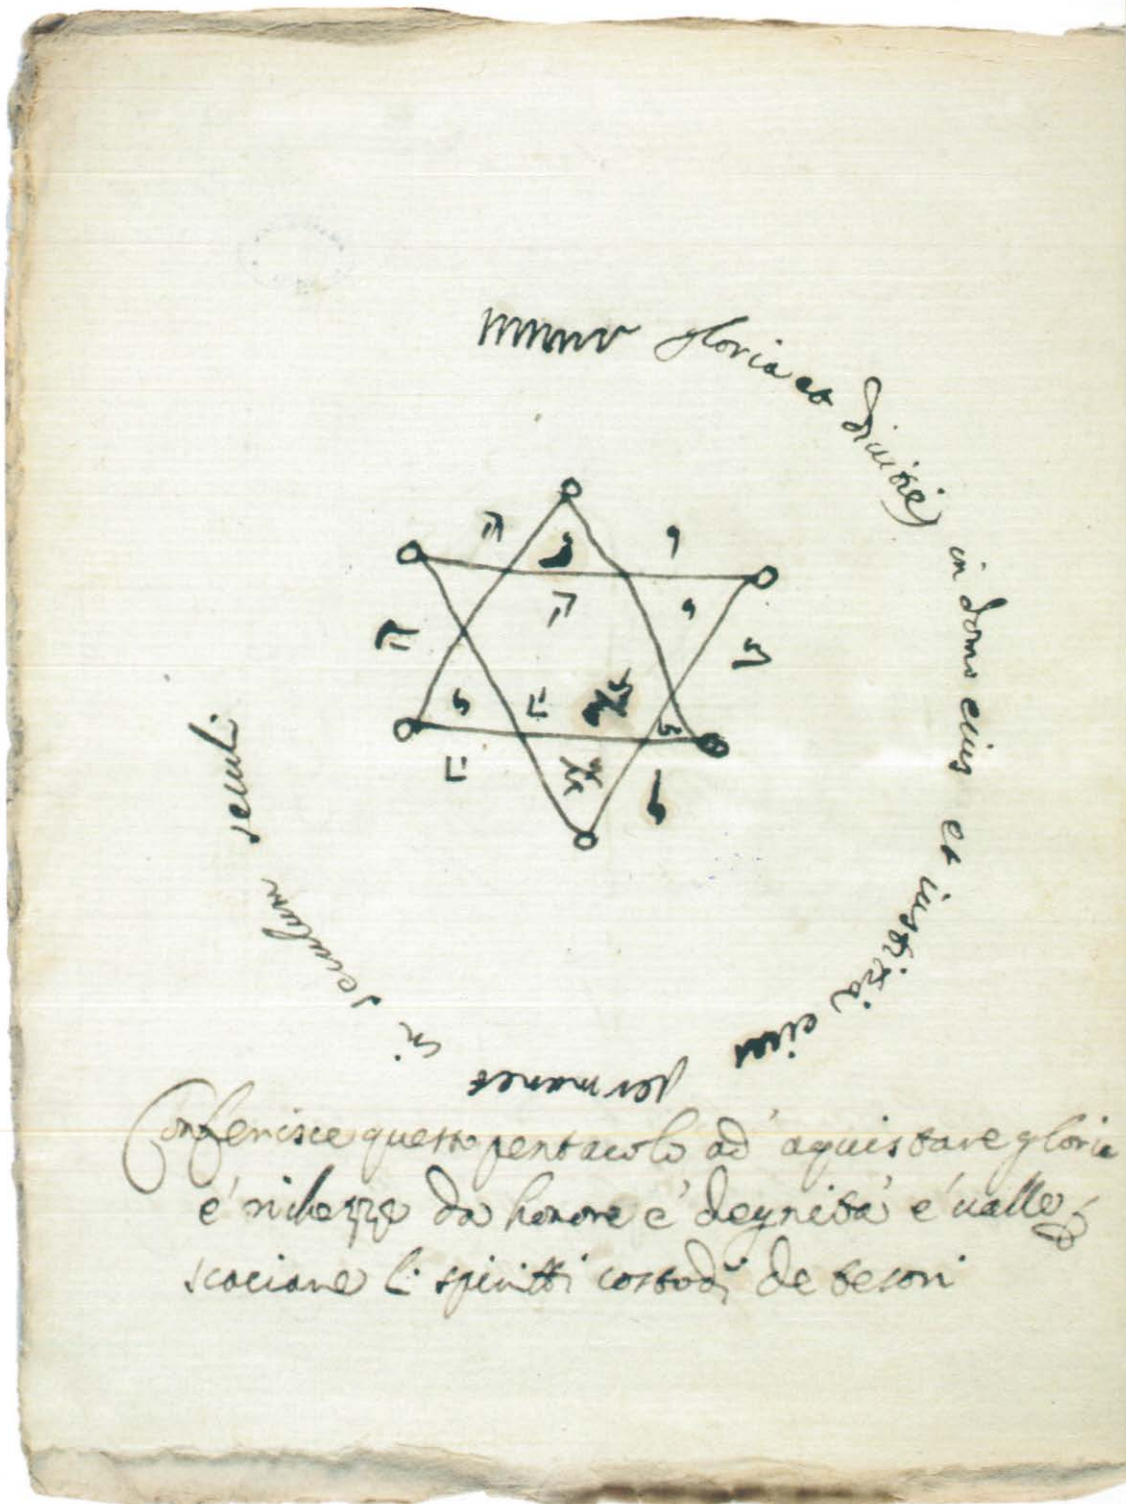 gloria et divitie in domo eius et iustitia eius permanet in seculum seculi
ה
ה
ה
ה
ה
Conferisce questo pentacolo ad' aquistare gloria
é richezze da honore é degnità é valle
scaciare li spiritti costodi de tesori